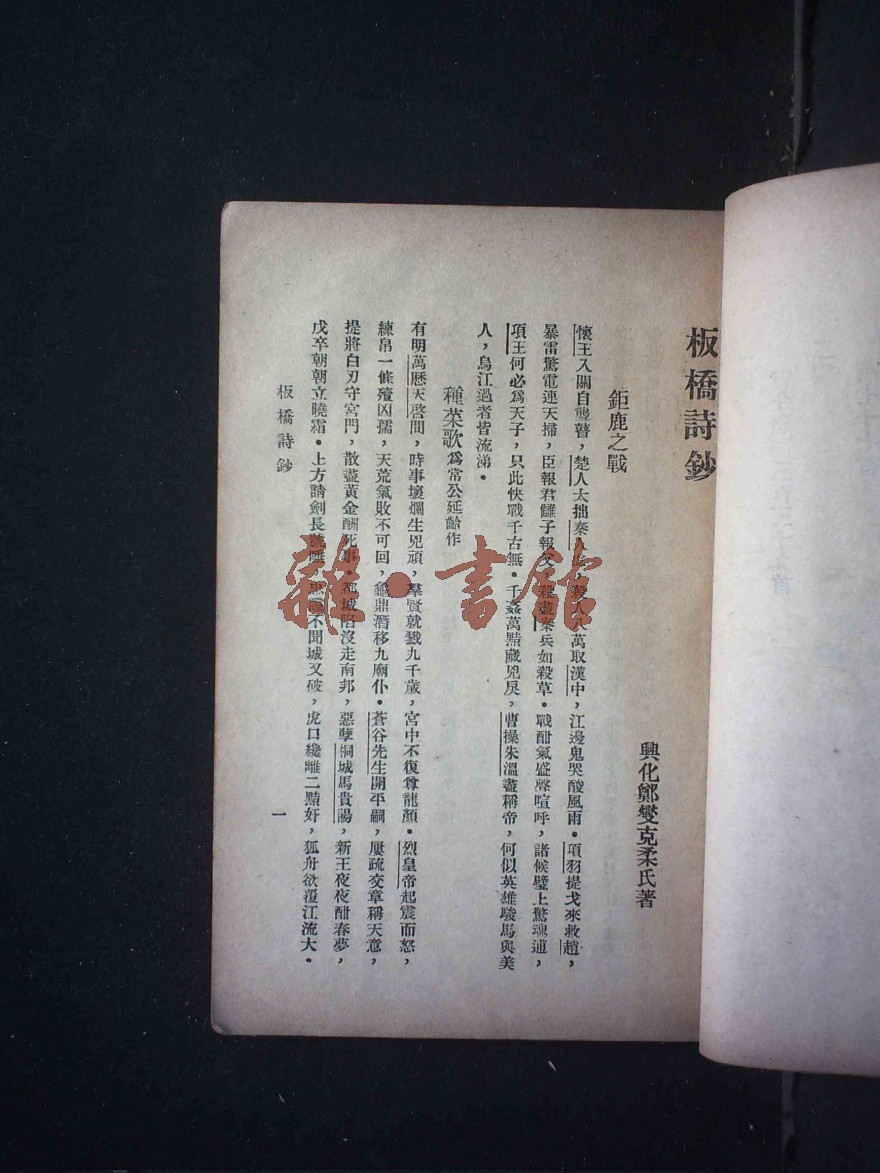 板橋詩鈔
興化鄭燮克柔氏著
鉅鹿之戰
懷王入關自聾瞽，楚人太拙秦人虎，殺人八萬取漢中，江邊鬼哭酸風雨。項羽提戈來救趙，
暴雷驚電連天掃，臣報君讎子報父，殺盡秦兵如殺草。戰酣氣盛聲喧呼，諸侯壁上驚魂逋，
項王何必爲天子，只此快戰千古無。千姦萬黠藏兇戾，曹操朱溫盡稱帝，何似英雄駿馬與美
人，烏江過者皆流涕。
種菜歌爲常公延齡作
有明萬歷天啓間，時事壞爛生兇頑，羣賢就戮九千歲，宮中不復尊龍顏。烈皇帝起震而怒，
練帛一條殪凶孺，天荒氣敗不可回，龜鼎潛移九廟仆。蒼谷先生開平嗣，屢疏交章稱天意，
提將白刃守宮門，散盡黃金酬死。都城陷沒走南邦，惡孽桐城馬貴陽，新王夜夜酣春夢，
戍卒朝朝立曉霜。上方請劍長，不聞城又破，虎口纔離二豎奸，狐舟欲覆江流大。
板橋詩鈔
一
雜·書館